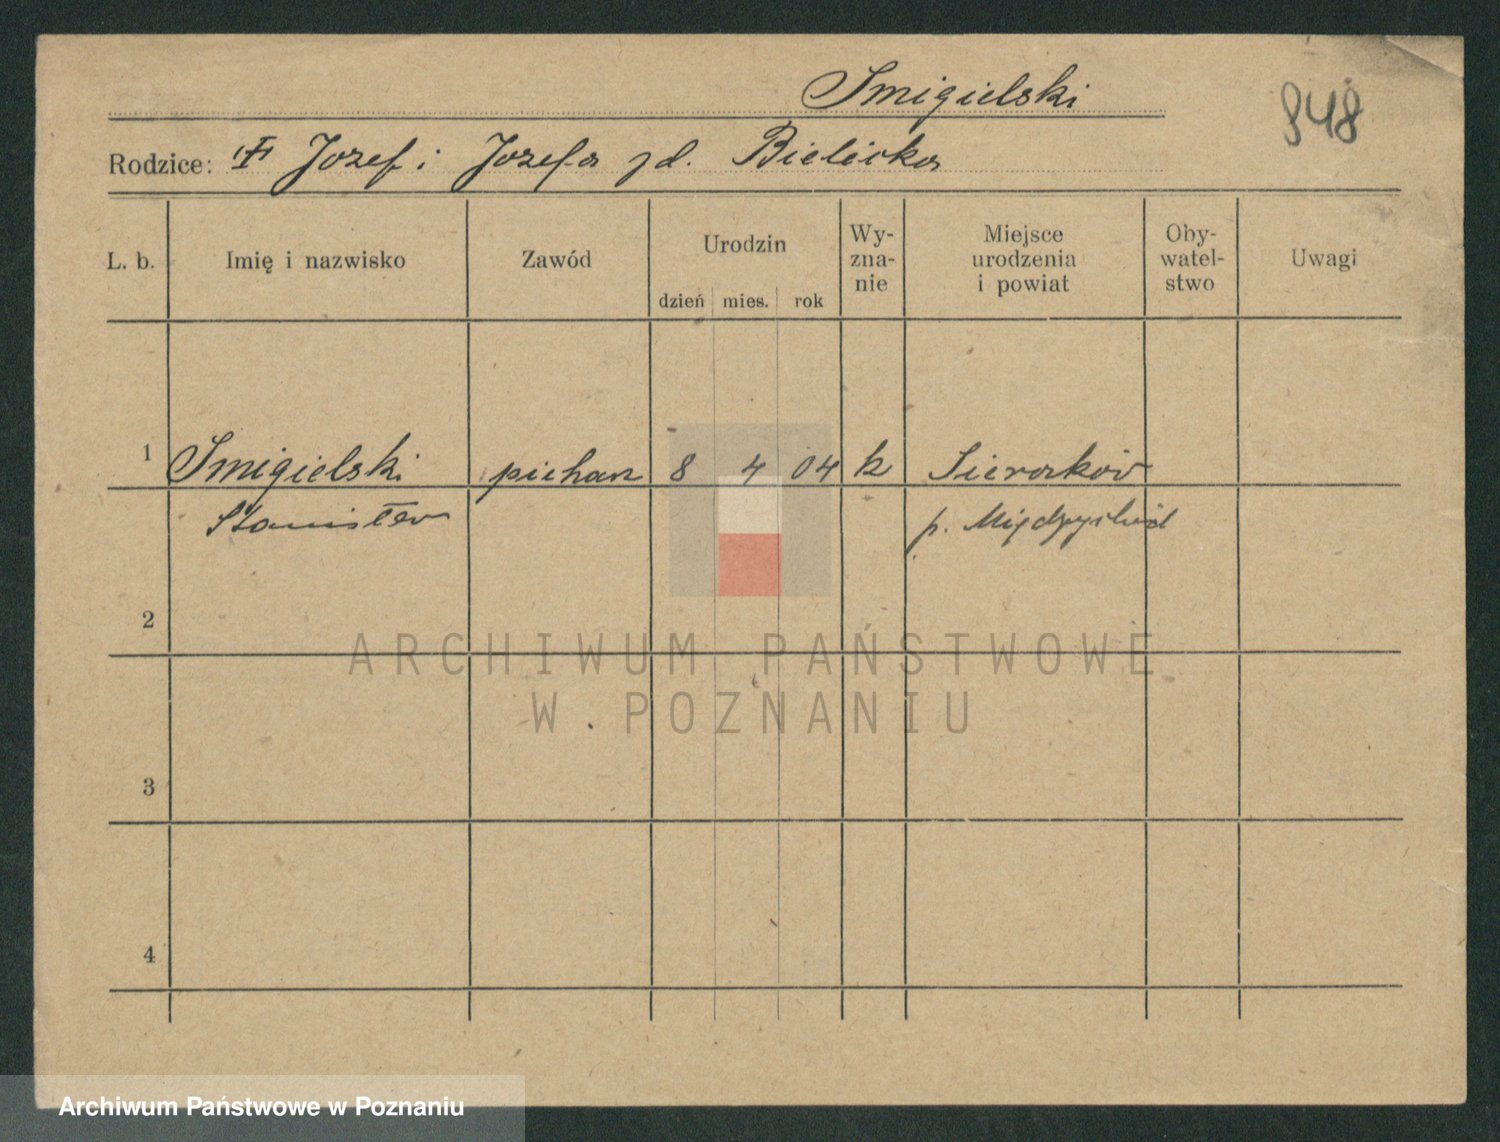 Smigielski
848
Rodzice: Jozef i Jozefa zd. Bielicka
L. b. Imię i nazwisko Zawód Urodzin dzień mies. rok Wy-zna-nie Miejsce urodzenia i powiat Oby-watel-stwo Uwagi
1 Smigielski piekarz 8 4 04 k Sieraków
Stanisław p. Międzychód
2
ARCHIWUM PAŃSTWOWE
W POZNANIU
3
4
Archiwum Państwowe w Poznaniu